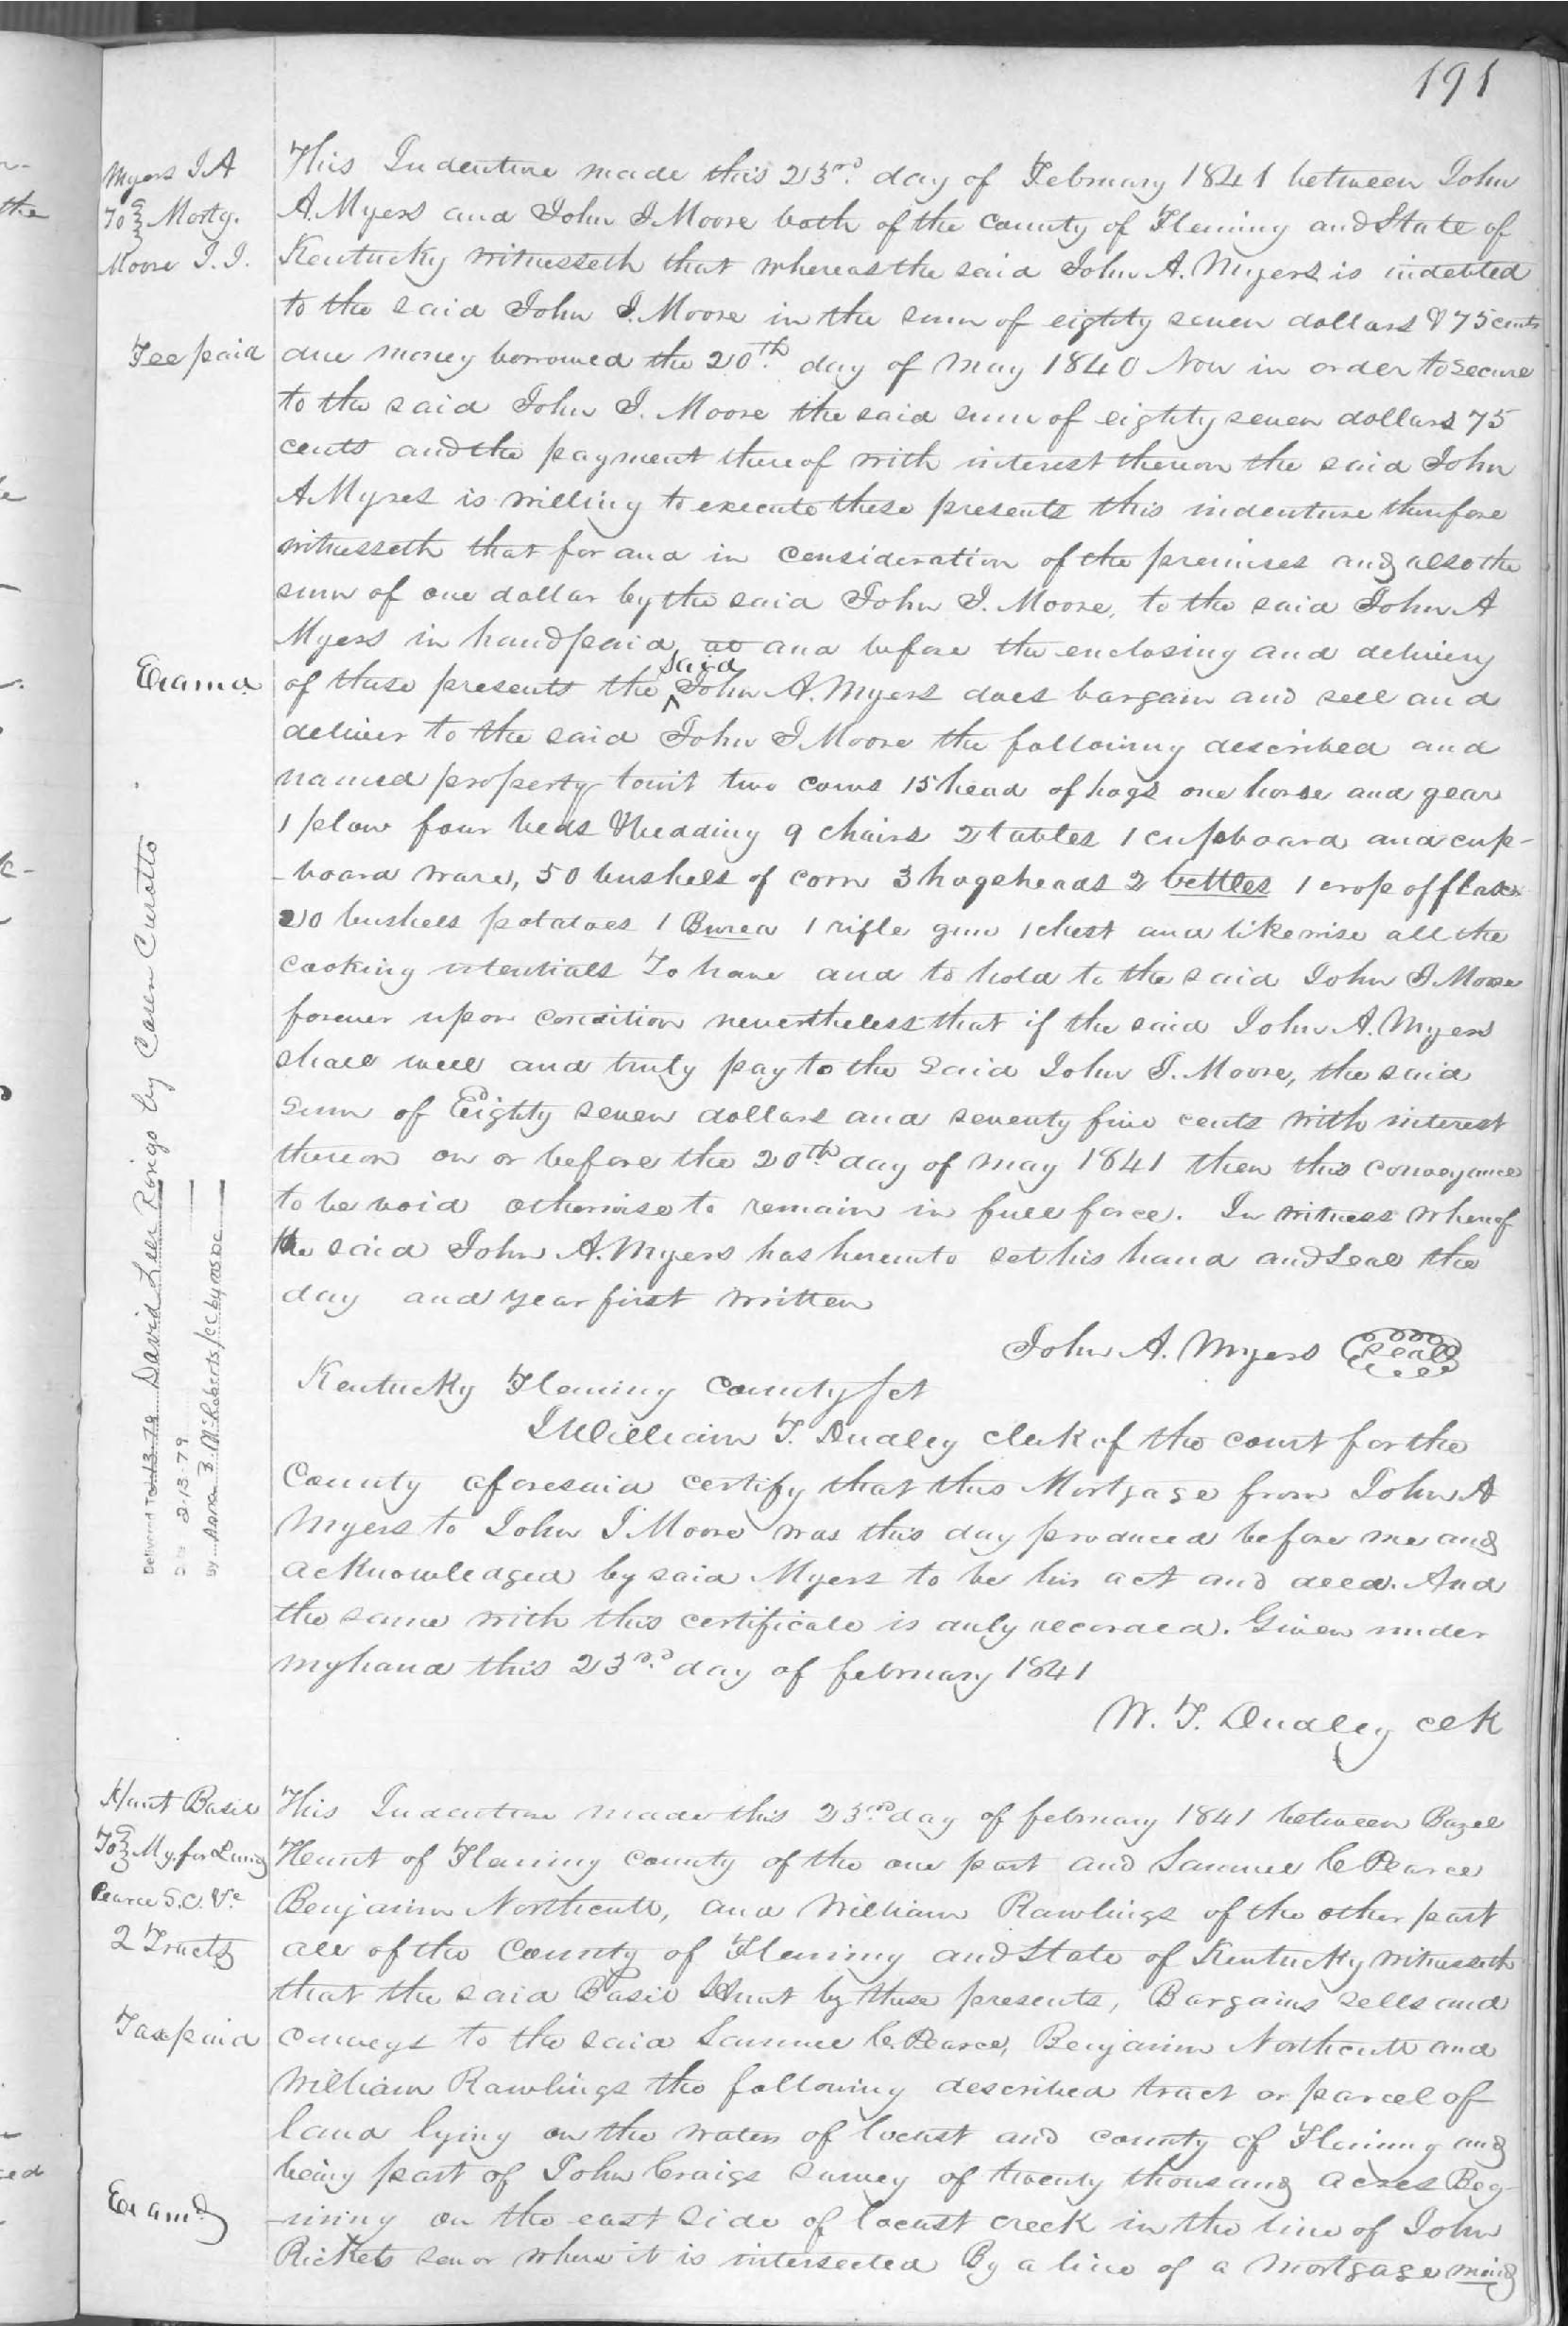 191
Myers J A
To } Mortg.
Moore J. J.
Fee paid
Examd
This Indenture made this 23rd. day of February 1841 between John
A. Myers and John J. Moore both of the County of Fleming and State of
Kentucky witnesseth that whereas the said John A. Myers is indebted
to the said John J. Moore in the sum of eighty seven dollars & 75 cents
due money borrowed the 20th. day of May 1840 Now in order to secure
to the said John J. Moore the said sum of eighty seven dollars 75
cents and the payment thereof with interest thereon the said John
A Myres is willing to execute these presents this indenture therefore
witnesseth that for and in consideration of the premises and also the
sum of one dollar by the said John J. Moore, to the said John A
Myers in hand paid, at and before the enclosing and delivery
of these presents the said John A. Myers does bargain and sell and
deliver to the said John J Moore the following described and
named property towit two cows 15 head of hogs one horse and gear
1 plow four beds & bedding 9 chairs 2 tables 1 cupboard and cup-
-board ware, 50 bushels of corn 3 hogsheads 2 bettles 1 crop of flax
20 bushels potatoes 1 Burea 1 rifle gun 1 chest and likewise all the
cooking utentials To have and to hold to the said John J Moore
forever upon condition nevertheless that if the said John A. Myers
shall well and truly pay to the said John J. Moore, the said
sum of Eighty seven dollars and seventy five cents with interest
thereon on or before the 20th. day of May 1841 then this conveyance
to be void otherwise to remain in full force. In witness whereof
the said John A. Myers has hereunto set his hand and seal the
day and year first written
John A. Myers Seal
Kentucky Fleming County sct
I William T. Dudley clerk of the court for the
County aforesaid certify that this Mortgage from John A
Myers to John J Moore was this day produced before me and
acknowledged by said Myers to be his act and deed. And
the same with this certificate is duly recorded. Given under
my hand this 23rd. day of february 1841
W. T. Dudley clk
Delivered To David Lee Ringo by Casen Curotto
2-13-79
By
Hunt Basil
To } Mg. for Land
Pearce S. C. &c
2 Tracts
Tax paid
Examd
This Indenture made this 23rd day of february 1841 between Bazel
Hunt of Fleming county of the one part and Samuel C Pearce
Benjamin Northcutt, and William Rawlings of the other part
all of the County of Fleming and State of Kentucky witnesseth
that the said Basil Hunt by these presents, Bargains sells and
conveys to the said Samuel C. Pearce, Benjamin Northcutt and
William Rawlings the following described tract or parcel of
land lying on the waters of locust and county of Fleming and
being part of John Craigs survey of twenty thousand acres Beg-
-inning on the east side of locust creek in the line of John
Rickets senor where it is intersected By a line of a mortgage